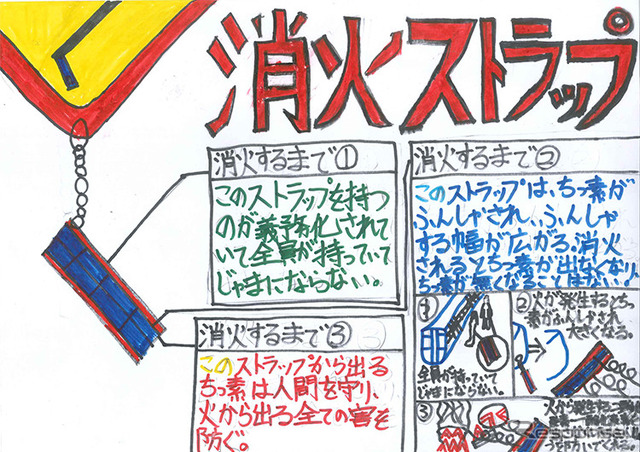 消火ストラップ
消火するまで①
このストラップを持つ
のが義務化されて
いて全員が持っていて
じゃまにならない。
消火するまで②
このストラップは、ちっ素が
ふんしゃされ、ふんしゃ
する幅が広がる。消火
されるとちっ素が出なくなり、
ちっ素が無くなることはない。
消火するまで③
このストラップから出る
ちっ素は人間を守り、
火から出る全ての害を
防ぐ。
①
全員が持っていて
じゃまにならない。
②火が発生するとちっ
素がふんしゃされ
大きくなる。
③
火から発生する